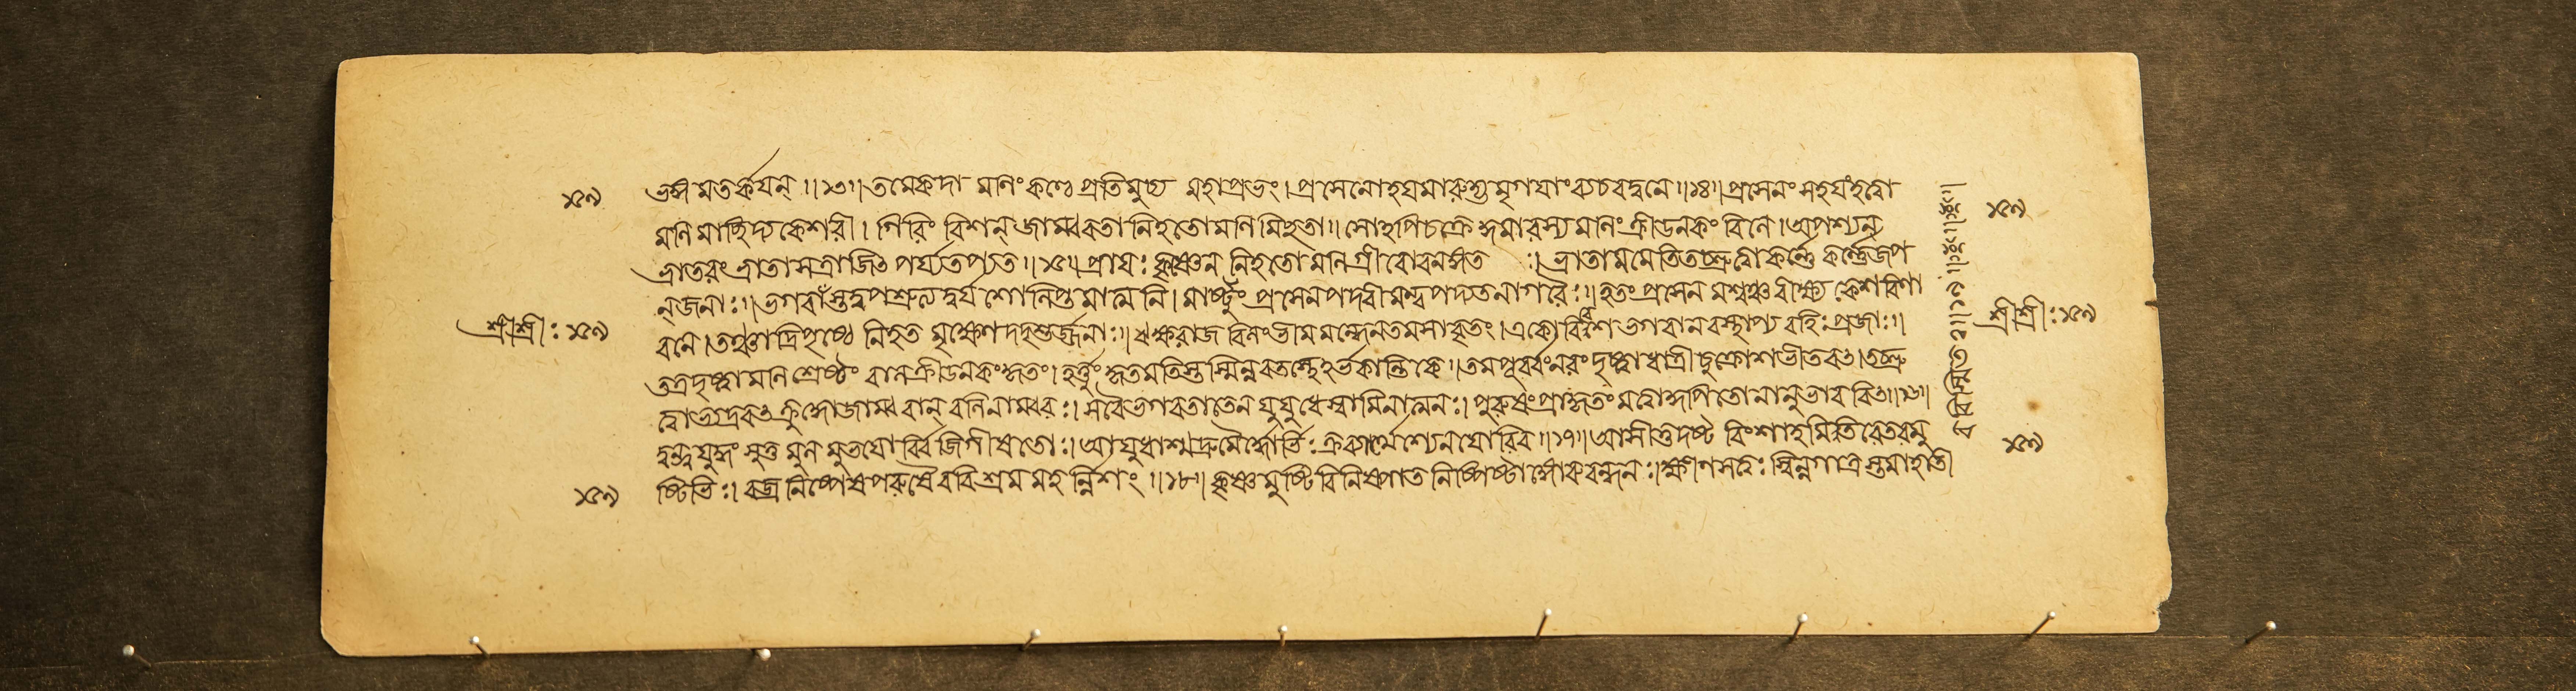 ভঙ্গ মতর্কযন্ ॥১৩॥ তমেকদা মণিং কণ্ঠে প্রতিমুচ্য মহাপ্রভং। প্রসেনোহযমারুহ্য মৃগযাং ব্যচরদ্বনে ॥১৪॥ প্রসেনং সহযংহত্বা
মণি মাচ্ছিদ্য কেশরী। গিরিং বিশন্ জাম্ববতা নিহতো মণি মিচ্ছতা॥ সোহপিচক্রে মণিং ক্রীডনকং বিলে। অপশ্যন্
ভ্রাতরং ভ্রাতা সত্রাজিৎ পর্য্যতপ্যত ॥১৫॥ প্রাযঃ কৃষ্ণেন নিহতো মণিগ্রীবোবনঙ্গত ঃ। ভ্রাতা মমেতিতচ্ছ্রুত্বা কর্ণ্ণে কর্ণ্ণেজপ
ন্ জনাঃ॥ ভগবাঁস্তদুপশ্রুত্য দুর্যশোলিপ্তমাত্মনি। মার্ষ্টুং প্রসেনপদবী মন্বপদ্যতনাগরৈঃ॥ হতং প্রসেন মশ্বঞ্চ বীক্ষ্য কেশরিণা
বনে। তঞ্চাদ্রিপৃষ্ঠে নিহত মৃক্ষেণ দদৃশুর্জ্জনাঃ॥ ঋক্ষরাজ বিলংভীম মন্ধেনতমসাবৃতং। একোবিবেশ ভগবানবস্থাপ্য বহিঃপ্রজাঃ॥
তত্রদৃষ্ট্বামণি শ্রেষ্ঠং বালক্রীডনকংকৃতং। হর্ত্তুং কৃতমতিস্তস্মিন্নবতস্থেহর্ভকান্তিকে॥ তমপূর্ব্বংনরং দৃষ্ট্বা ধাত্রী চুক্রোশভীতবৎ। তচ্ছ্রু
ত্বাভ্যদ্রবৎ ক্রুদ্ধোজাম্ববান্ বলিনাম্বরঃ। সবৈভগবতাতেন যুযুধেস্বামিনাত্মনঃ। পুরুষংপ্রাকৃতংমত্বাকুপিতো নানুভাব বিৎ॥১৬॥
দ্বন্দ্বযুদ্ধং সুতুমুল মুভযোর্ব্বিজিগীষতোঃ। আযুধাশ্মদ্রুমৈর্দ্দোর্ভিঃ ক্রব্যার্থেশ্যেনযোরিব ॥১৭॥ আসীত্তদষ্ট বিংশাহমিতরেতরমু
ষ্টিভিঃ। বজ্র নিষ্পেষপরুষৈরবিশ্রমমহর্ন্নিশং ॥১৮॥ কৃষ্ণ মুষ্টিবিনিষ্পাত নিষ্পিষ্টাঙ্গোরুবন্ধনঃ। ক্ষীণসত্বঃ স্বিন্নগাত্রস্তমাহাতী
শ্রীশ্রীঃ ১৫৯
শ্রীশ্রীঃ ১৫৯
১৫৯
১৫৯
১৫৯
১৫৯